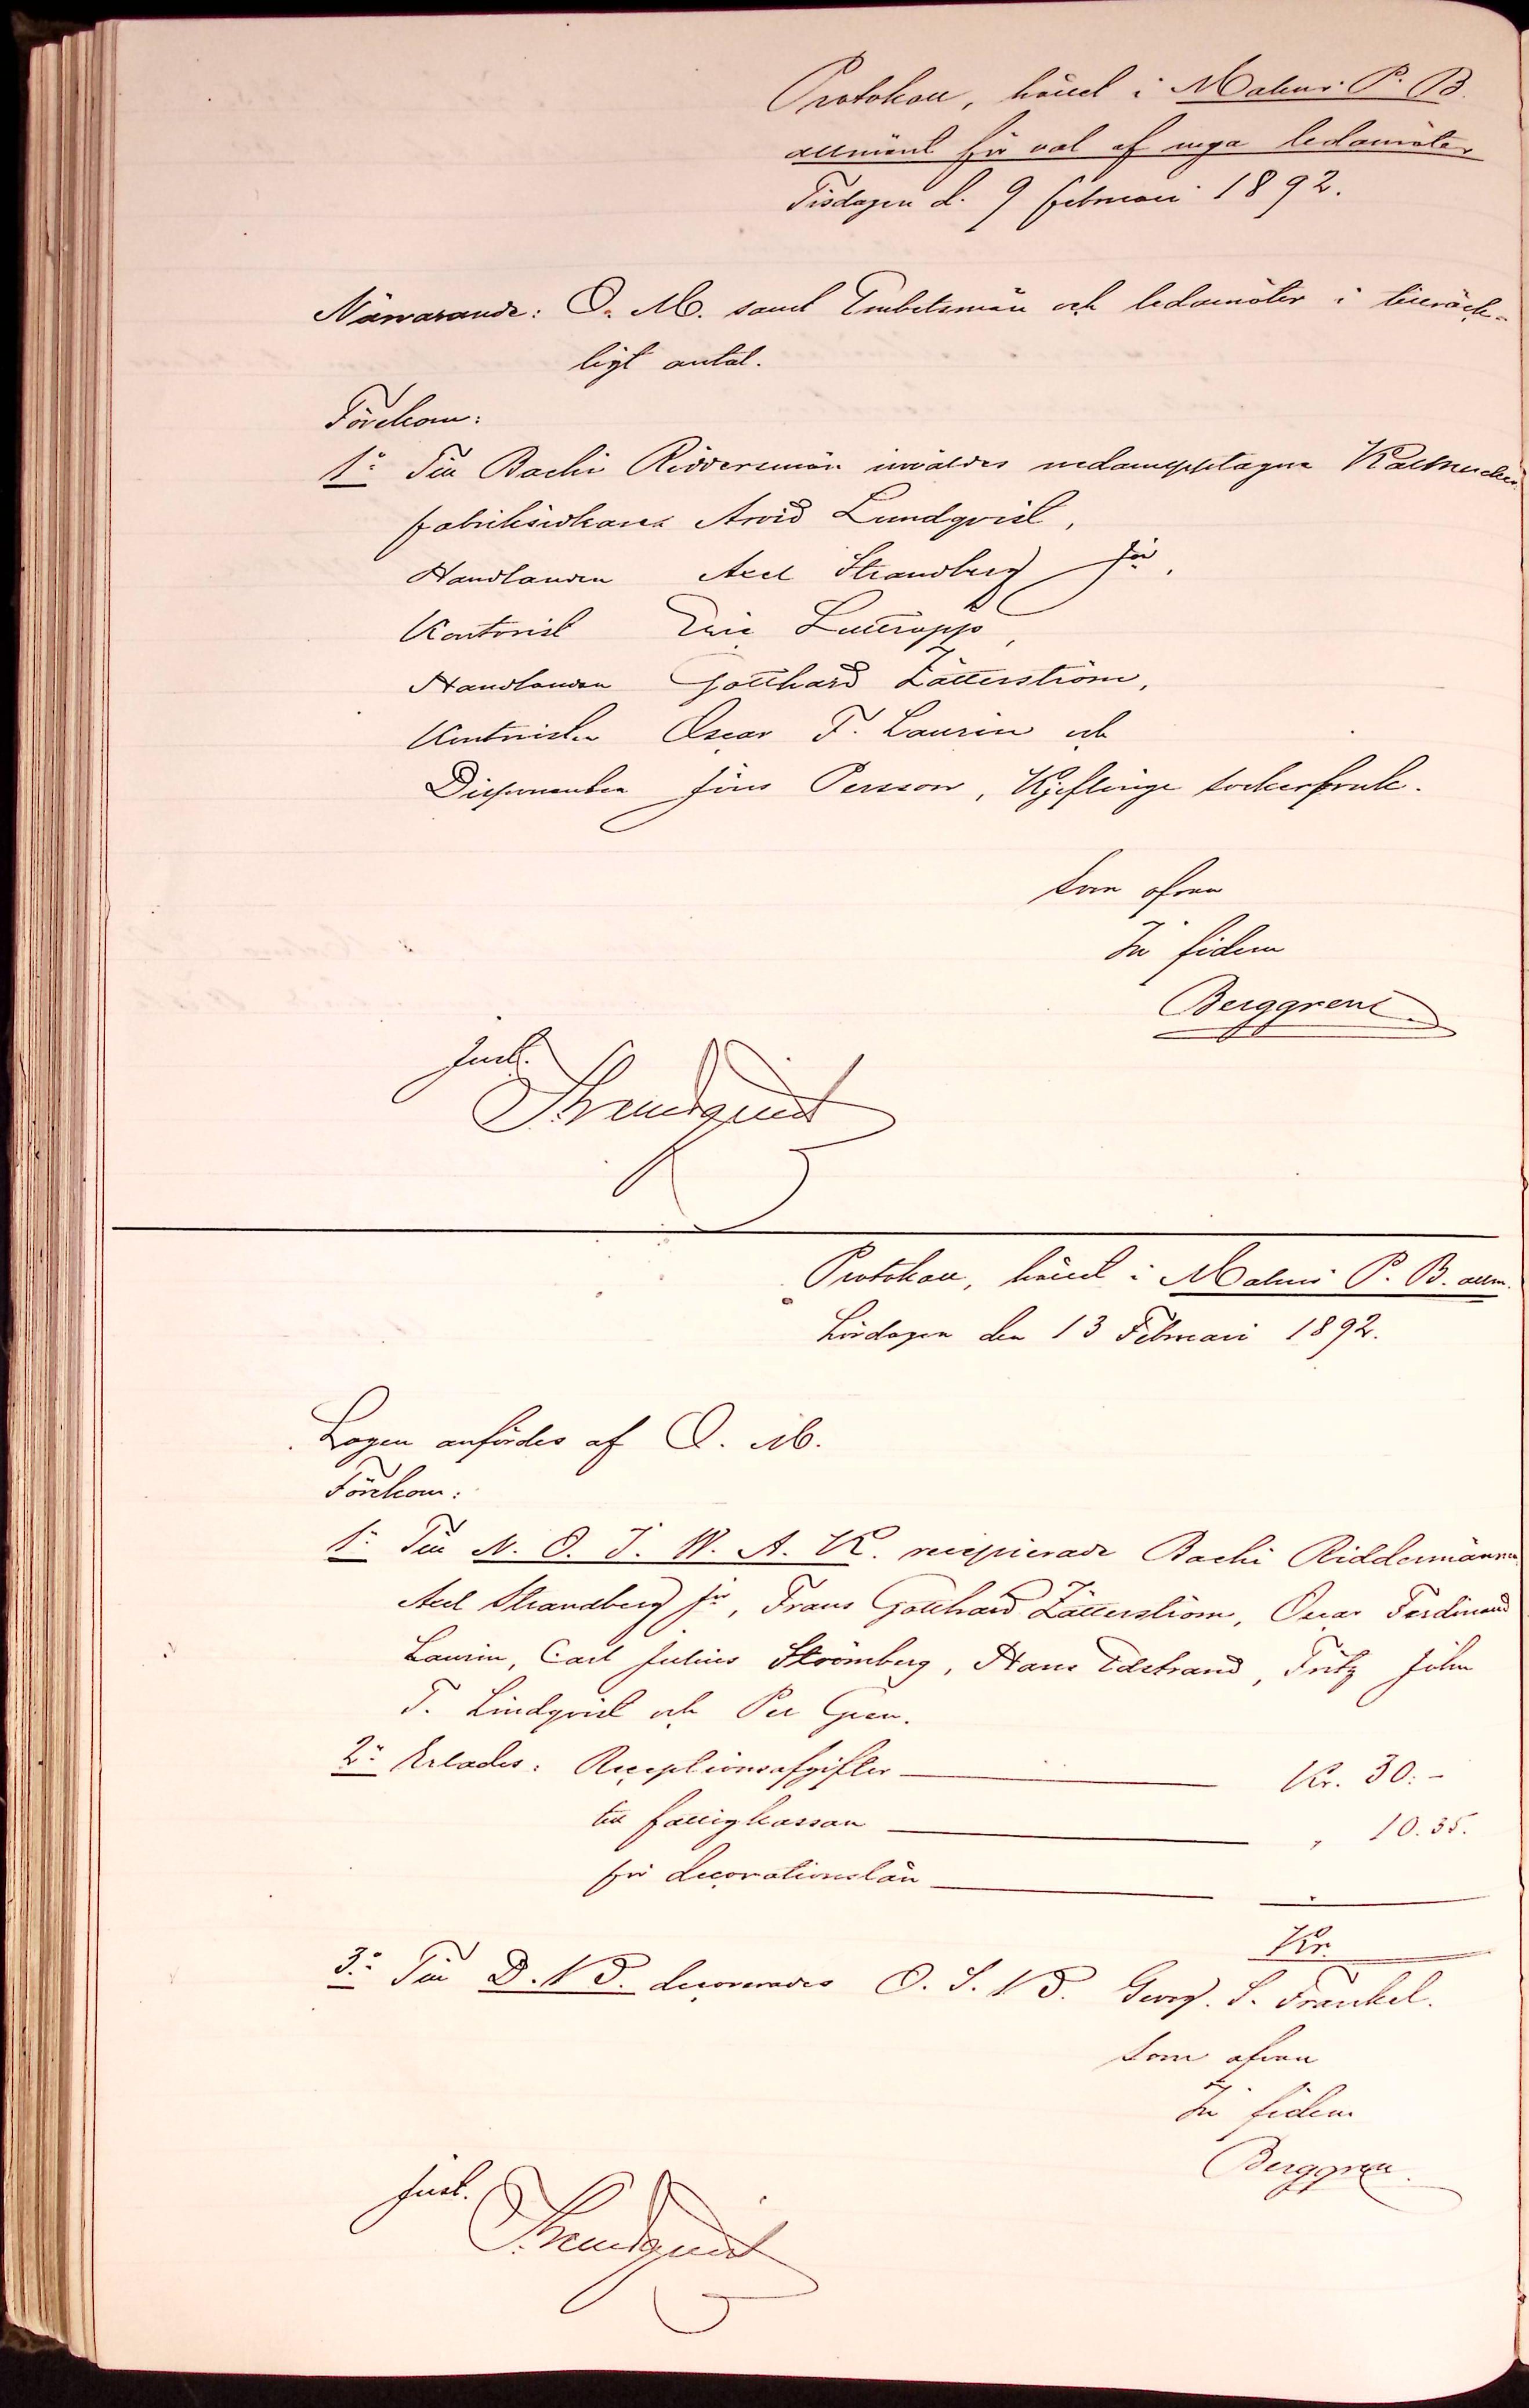 Protokoll, hållet i Malmö P. B.
allmänt för val af nya ledamöter
Tisdagen d. 9 februari 1892.
Närvarande: O. M. samt Embetsmän och ledamöter i tillräck-
ligt antal.
Förekom:
1o Till Bachi Riddersmän invaldes nedanupptagne
fabriksidkaren Arvid Lundqvist,
Handlanden Axel Strandberg Jor,
Kontorist Eric Lutteropp,
Handlanden Gotthard Zätterström,
Kontoristen Oscar F. Laurin och
Disponenten Jöns Persson, Kjeflinge sockerbruk.
Som ofvan
In fidem
Berggren
Just.
Protokoll, hållet i Malmö P. B. allm.
Lördagen den 13 Februari 1892.
Logen anfördes af O. M.
Förekom:
1o Till N. O. J. W. A. K. recipierade Bachi Riddermännen
Axel Strandberg jor, Frans Gotthard Zätterström, Oscar Ferdinand
Laurin, Carl Julius Strömberg, Hans Edstrand, Fritz John
T. Lindqvist och Per Gren.
2o Erlades: Receptionsafgifter Kr. 30:-
till fattigkassan " 10.35.
för decorationslån "
Kr.
3o Till D. N T. decorerades O. S. N T. Georg. S. Fränkel.
Som ofvan
In fidem
Berggren.
Just.